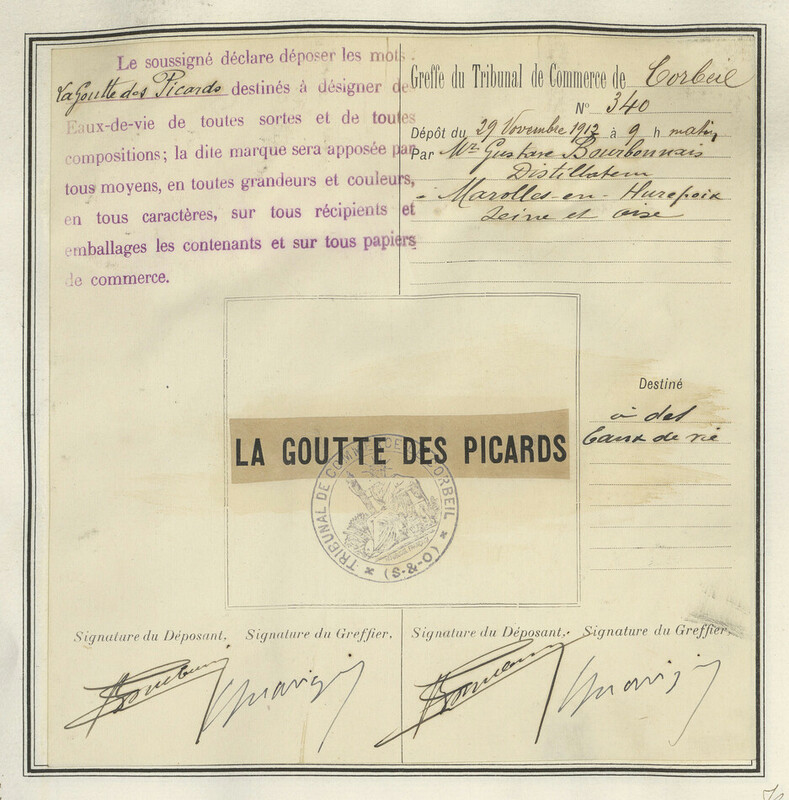 Le soussigné déclare déposer les mots
La Goutte des Picards destinés à désigner des
Eaux-de-vie de toutes sortes et de toutes
compositions; la dite marque sera apposée par
tous moyens, en toutes grandeurs et couleurs,
en tous caractères, sur tous récipients et
emballages les contenants et sur tous papiers
de commerce.
Greffe du Tribunal de Commerce de Corbeil
N° 340
Dépôt du 29 Novembre 1912 à 9 h matin
Par Mr. Gustave Bourbonnais
Distillateur
à Marolles-en-Hurepoix
Seine et Oise
LA GOUTTE DES PICARDS
TRIBUNAL DE COMMERCE DE CORBEIL
(S-&-O)
Destiné
à des
Eaux de vie
Signature du Déposant. Signature du Greffier.
Signature du Déposant. Signature du Greffier.